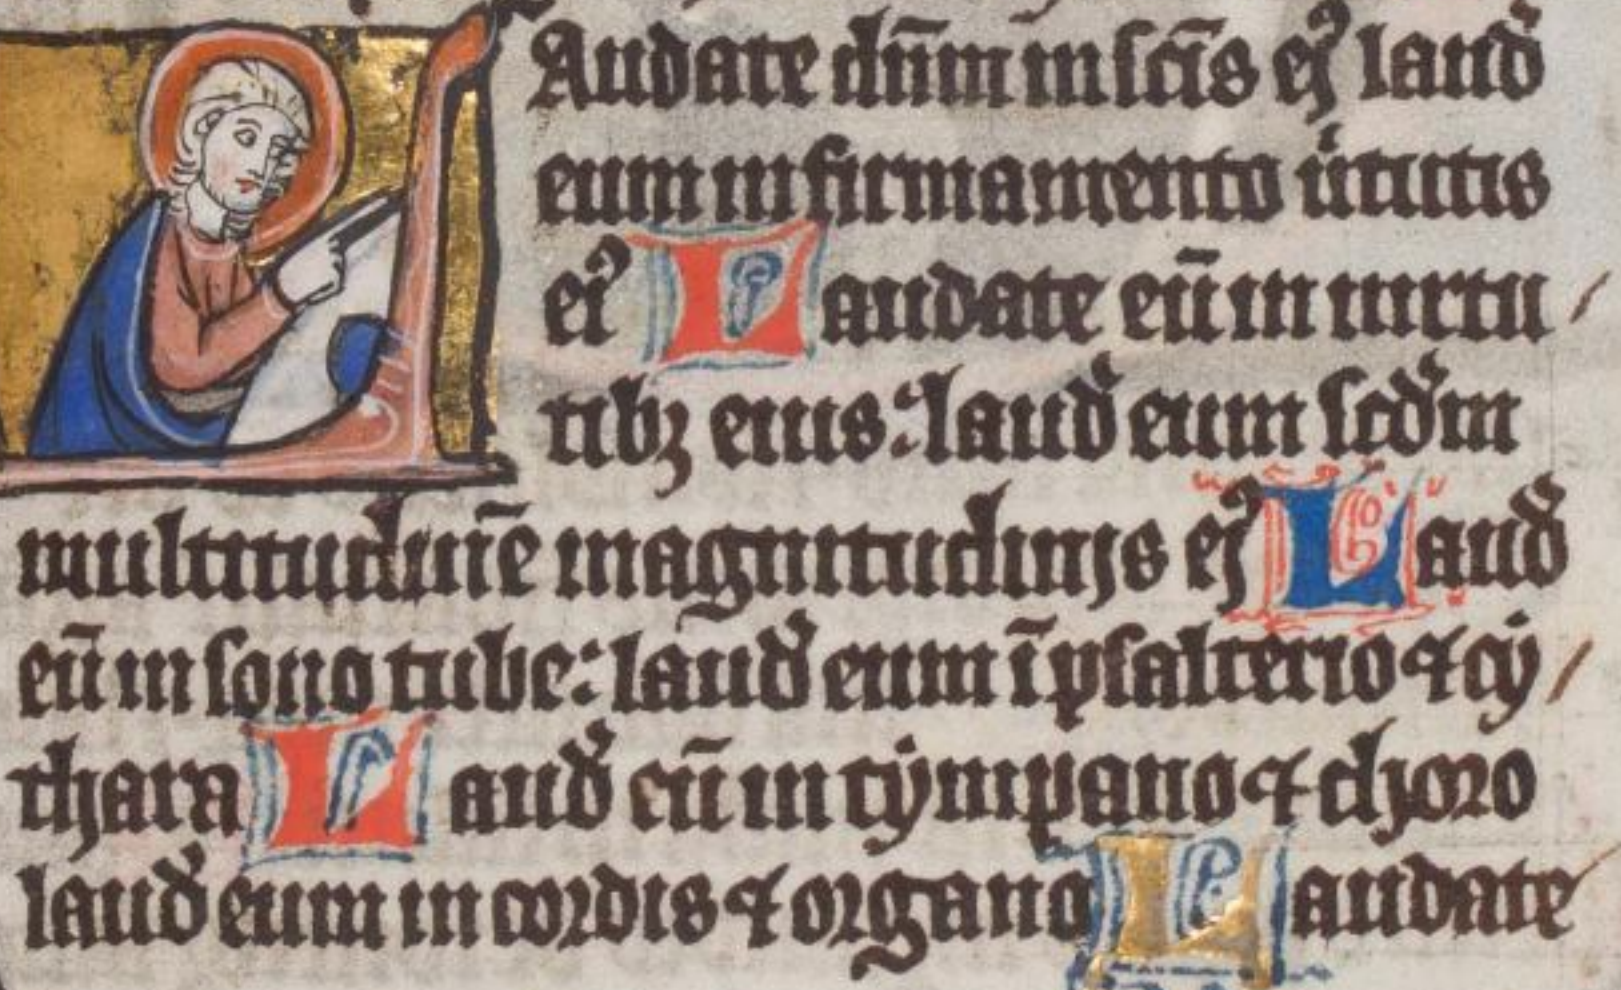 LAudate dn̄m in sc̄is eiꝰ laud̉
eum in firmamento v̉tutis
eiꝰ Laudate eū in uirtu
tibꝫ eius: laud̉ eum scd̉m
multitudinē magnitudinis eiꝰ Laud̉
eū in sono tube: laud̉ eum ī psalterio ⁊ cy
thara Laud̉ eū in tympano ⁊ choro
laud̉ eum in cordis ⁊ organo Laudate